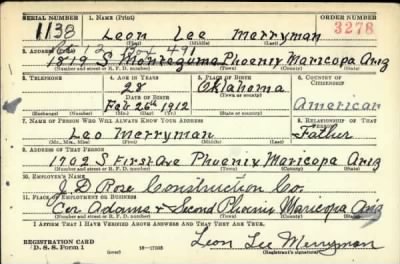 SERIAL NUMBER 1. NAME (Print) ORDER NUMBER
1138 Leon Lee Merryman 3278
(First) (Middle) (Last)
2. ADDRESS (Print) Box 491
1819 S Montezuma Phoenix Maricopa Ariz
(Number and street or R. F. D. number) (Town) (County) (State)
3. TELEPHONE 4. AGE IN YEARS 5. PLACE OF BIRTH 6. COUNTRY OF CITIZENSHIP
28 Oklahoma
DATE OF BIRTH (Town or county)
Feb 26th 1912 American
(Exchange) (No.) (Mo.) (Day) (Yr.) (State or country)
7. NAME OF PERSON WHO WILL ALWAYS KNOW YOUR ADDRESS 8. RELATIONSHIP OF THAT PERSON
Leo Merryman Father
(Mr., Mrs., Miss) (First) (Middle) (Last)
9. ADDRESS OF THAT PERSON
1702 S First Ave Phoenix Maricopa Ariz
(Number and street or R. F. D. number) (Town) (County) (State)
10. EMPLOYER'S NAME
J D Rose Construction Co.
11. PLACE OF EMPLOYMENT OR BUSINESS
Cor Adams & Second Phoenix Maricopa Ariz
(Number and street or R. F. D. number) (Town) (County) (State)
I AFFIRM THAT I HAVE VERIFIED ABOVE ANSWERS AND THAT THEY ARE TRUE.
REGISTRATION CARD
D. S. S. Form 1 16-17105 Leon Lee Merryman
(Registrant's signature)